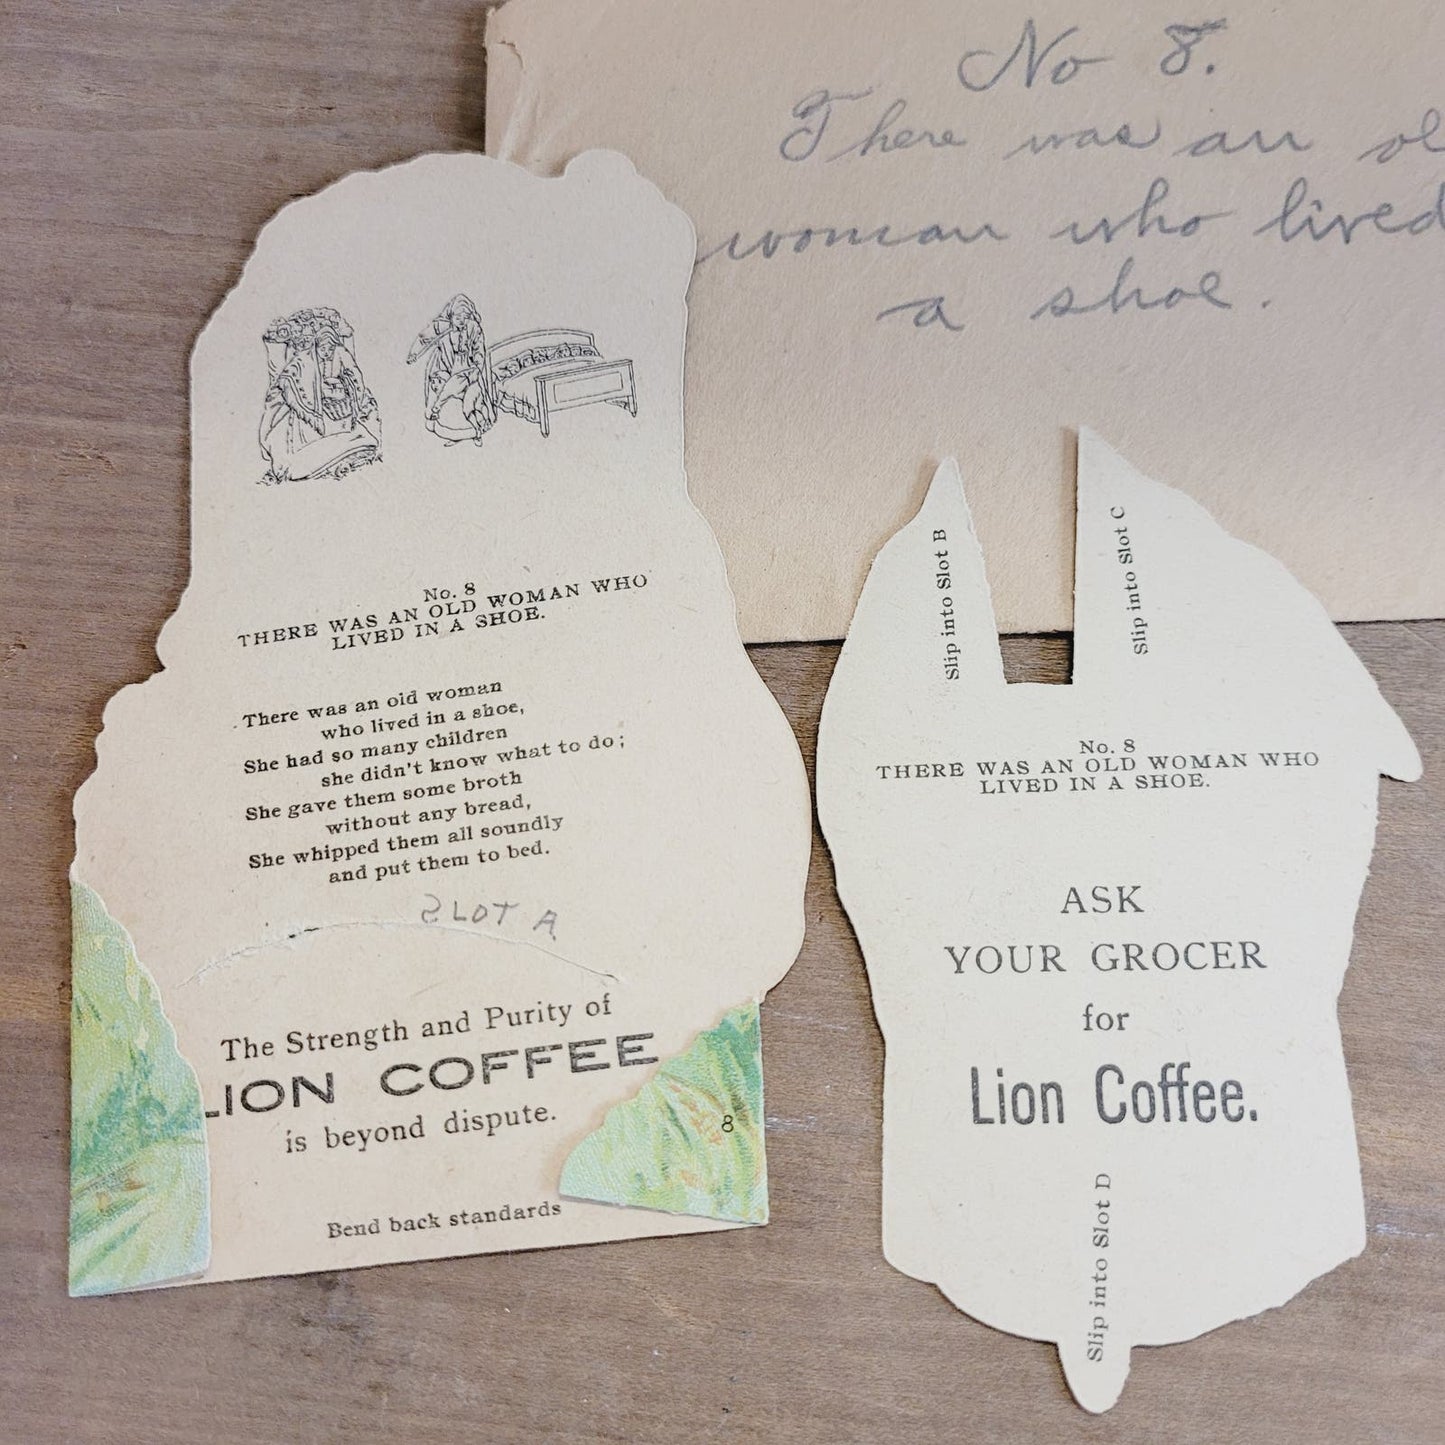 No 8.
There was an ol
woman who lived
a shoe.
No. 8
THERE WAS AN OLD WOMAN WHO
LIVED IN A SHOE.
There was an old woman
who lived in a shoe,
She had so many children
she didn't know what to do;
She gave them some broth
without any bread,
She whipped them all soundly
and put them to bed.
SLOT A
The Strength and Purity of
LION COFFEE
is beyond dispute.
8
Bend back standards
Slip into Slot B
Slip into Slot C
No. 8
THERE WAS AN OLD WOMAN WHO
LIVED IN A SHOE.
ASK
YOUR GROCER
for
Lion Coffee.
Slip into Slot D